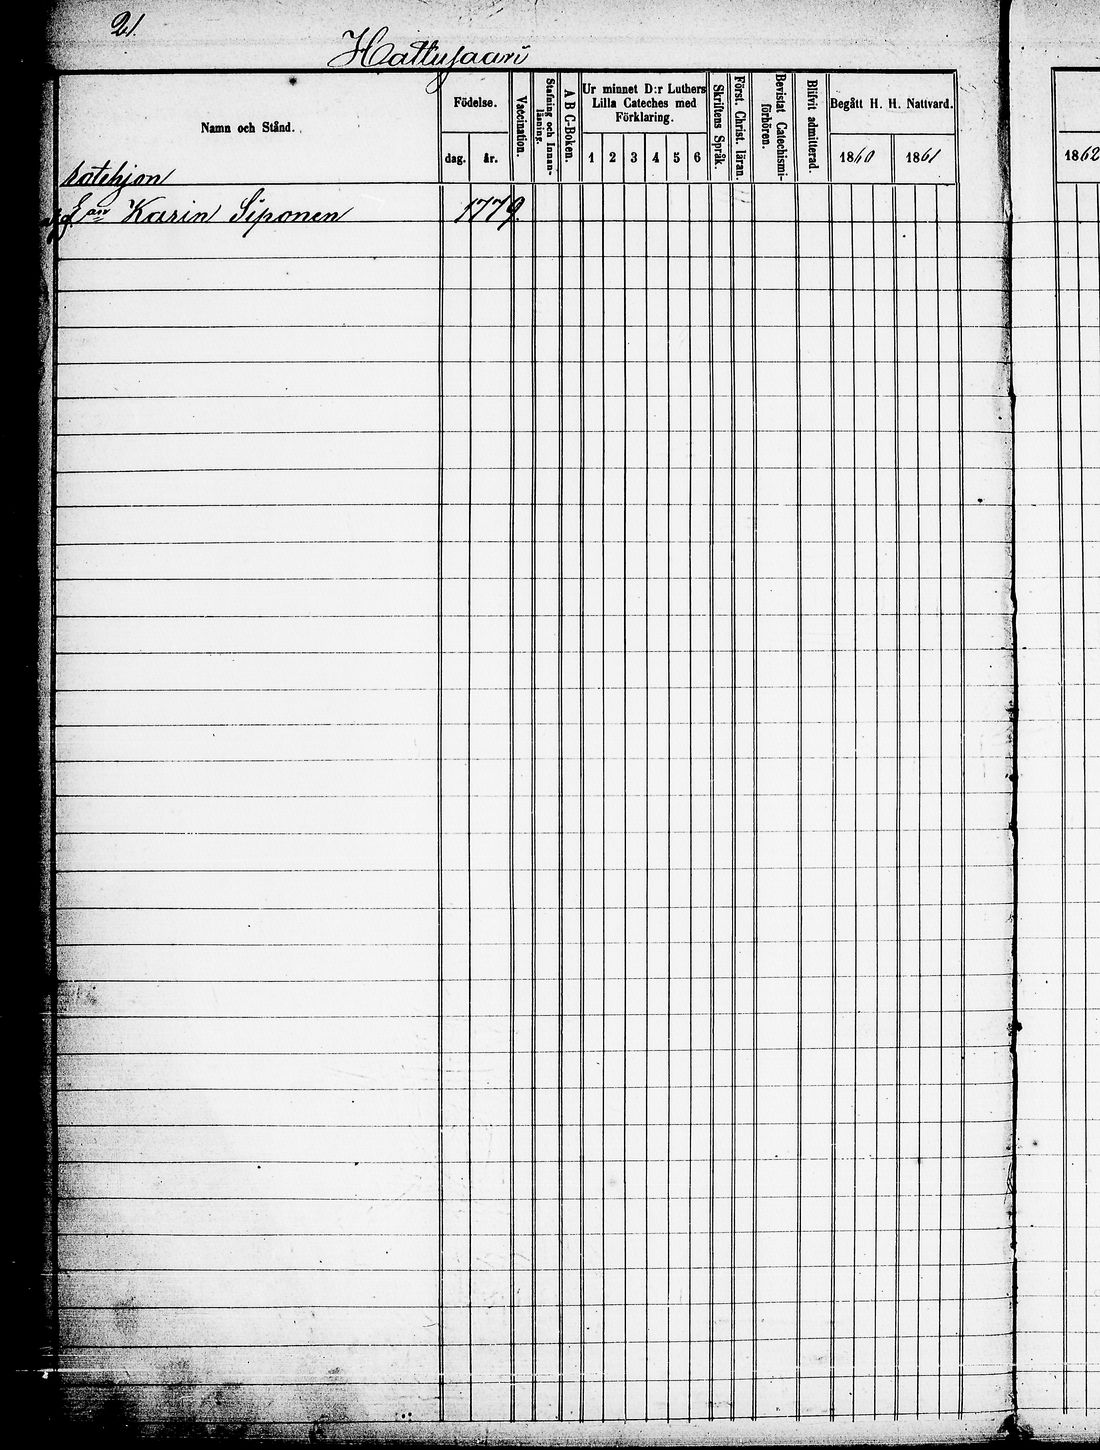 21.
Hattusaari
Namn och Stånd.
Födelse.
dag. år.
Vaccination.
Stafning och Innan-
läsning.
A B C-Boken.
Ur minnet D:r Luthers
Lilla Cateches med
Förklaring.
1 2 3 4 5 6
Skriftens Språk.
Först. Christ. läran.
Bevistat Catechismi-
förhören.
Blifvit admitterad.
Begått H. H. Nattvard.
1860 1861
1862
Karin Siponen 1779.